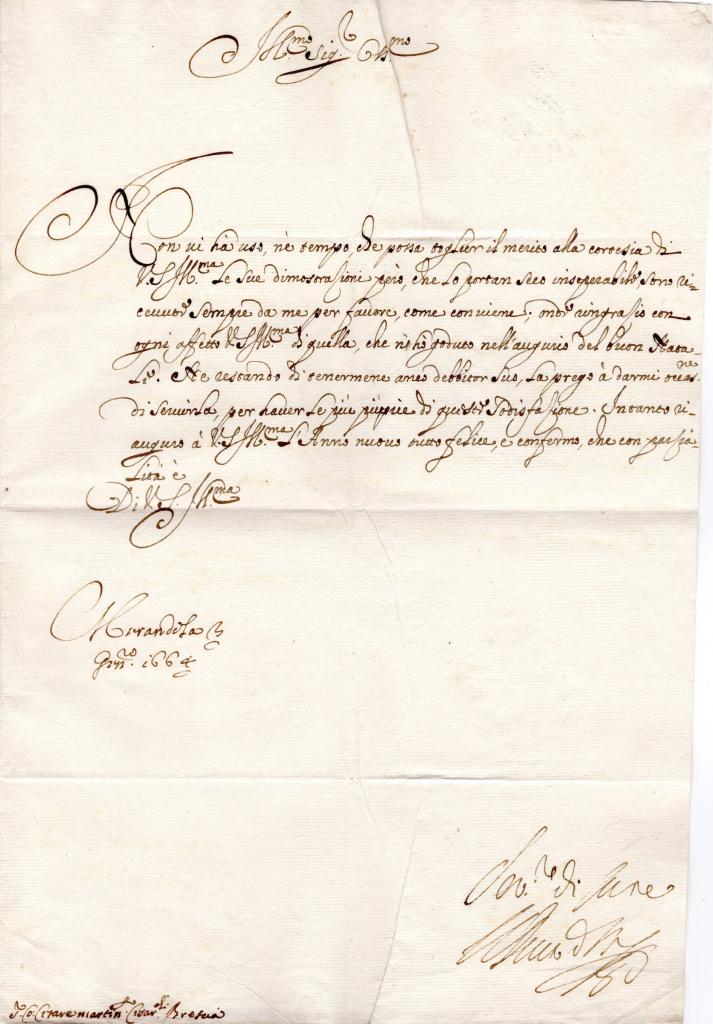 Ill.mo Sig.r Oss.mo
Non vi hà uso, nè tempo, che possa toglier il merito alla cortesia di
V.S. Ill.ma Le sue dimostrazioni però, che lo portan seco inseperabile, sono ri-
cevute sempre da me per favore, come conviene; onde ringrazio con
ogni affetto V.S. Ill.ma di quella, che n'hò goduto nell'augurio del buon Nata-
le. Ne restando di tenermene anco debbitor suo, la prego à darmi occas.ne
di servirla, per haver le più proprie di queste sodisfazione. Intanto ri-
auguro à V.S. Ill.ma l'Anno nuovo tutto felice, e confermo, che con parzia-
lità è
Di V.S. Ill.ma
Mirandola 3
Gen.ro 1664
Ser.re di cuore
S.r Co. Cesare Martin.o Cesar.chi Brescia